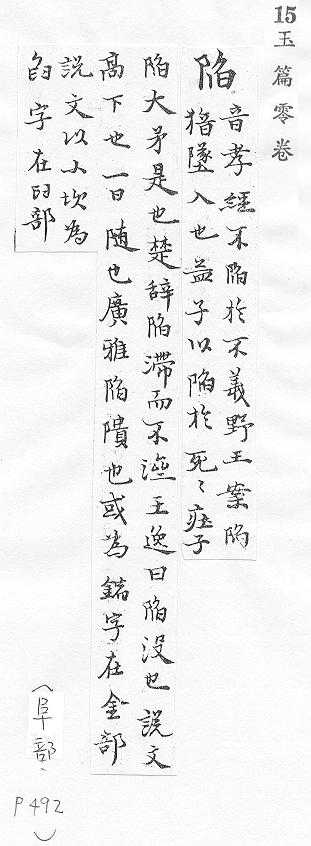 15 玉篇零卷
陷
音孝經不陷於不義野王案陷
猶墜入也益子以陷於死〻疰子
陷大矛是也楚辭陷滯而不濟王逸曰陷没也說文
高下也一曰随也廣雅陷隤也或為錎字在金部
說文以小坎為
臽字在臼部
(阜部、P492)